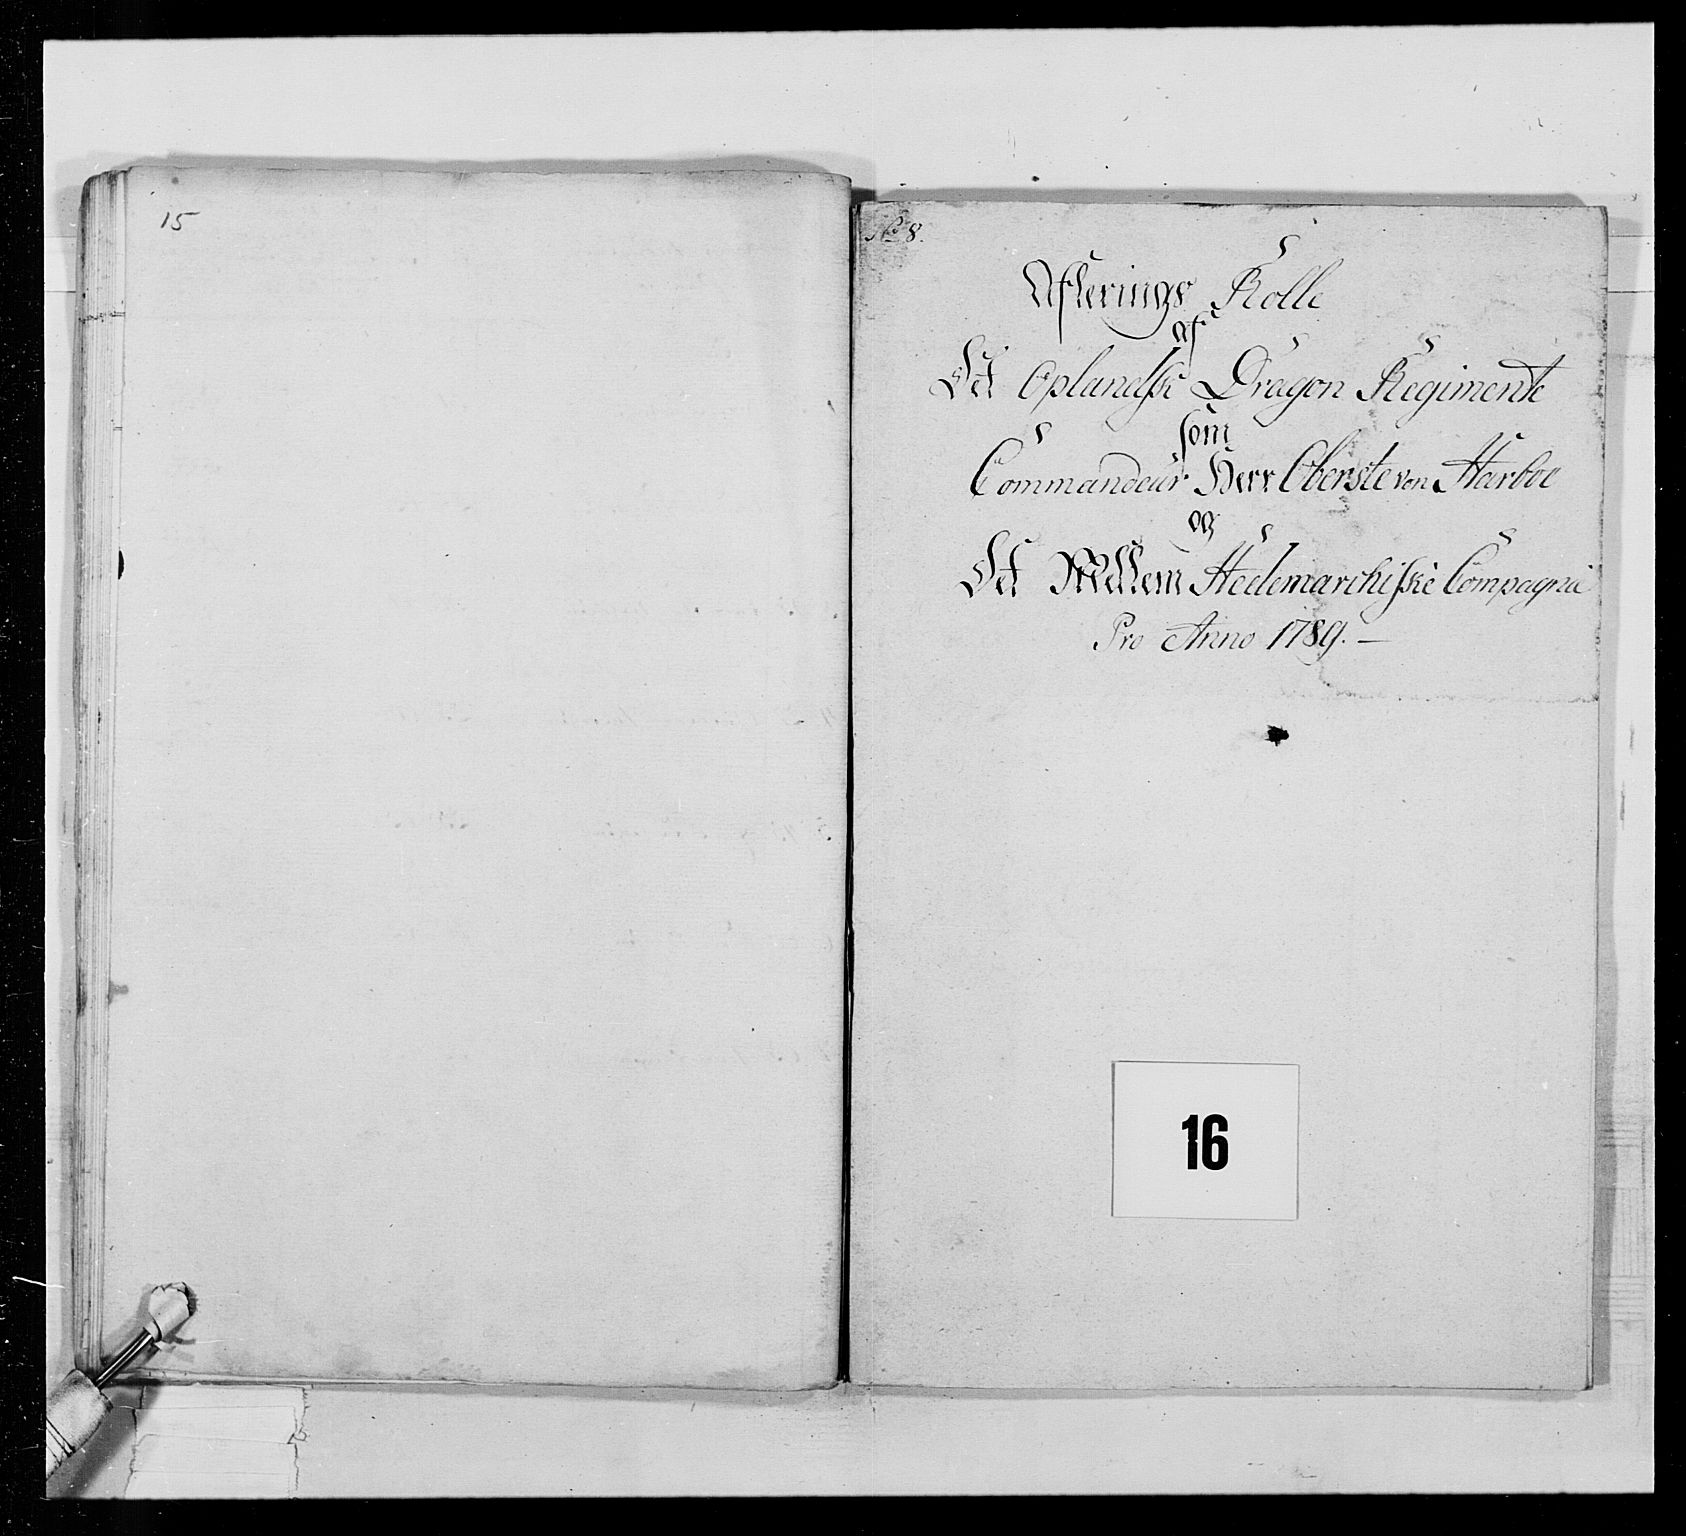 15
No 8.
Afleerings Rolle
af
Det Oplandske Dragon Regimente
som
Commandeur Herr Oberste von Heerboe
og
Det Mellem Hedemarchiske Compagnie
Pro Anno 1789. —
16